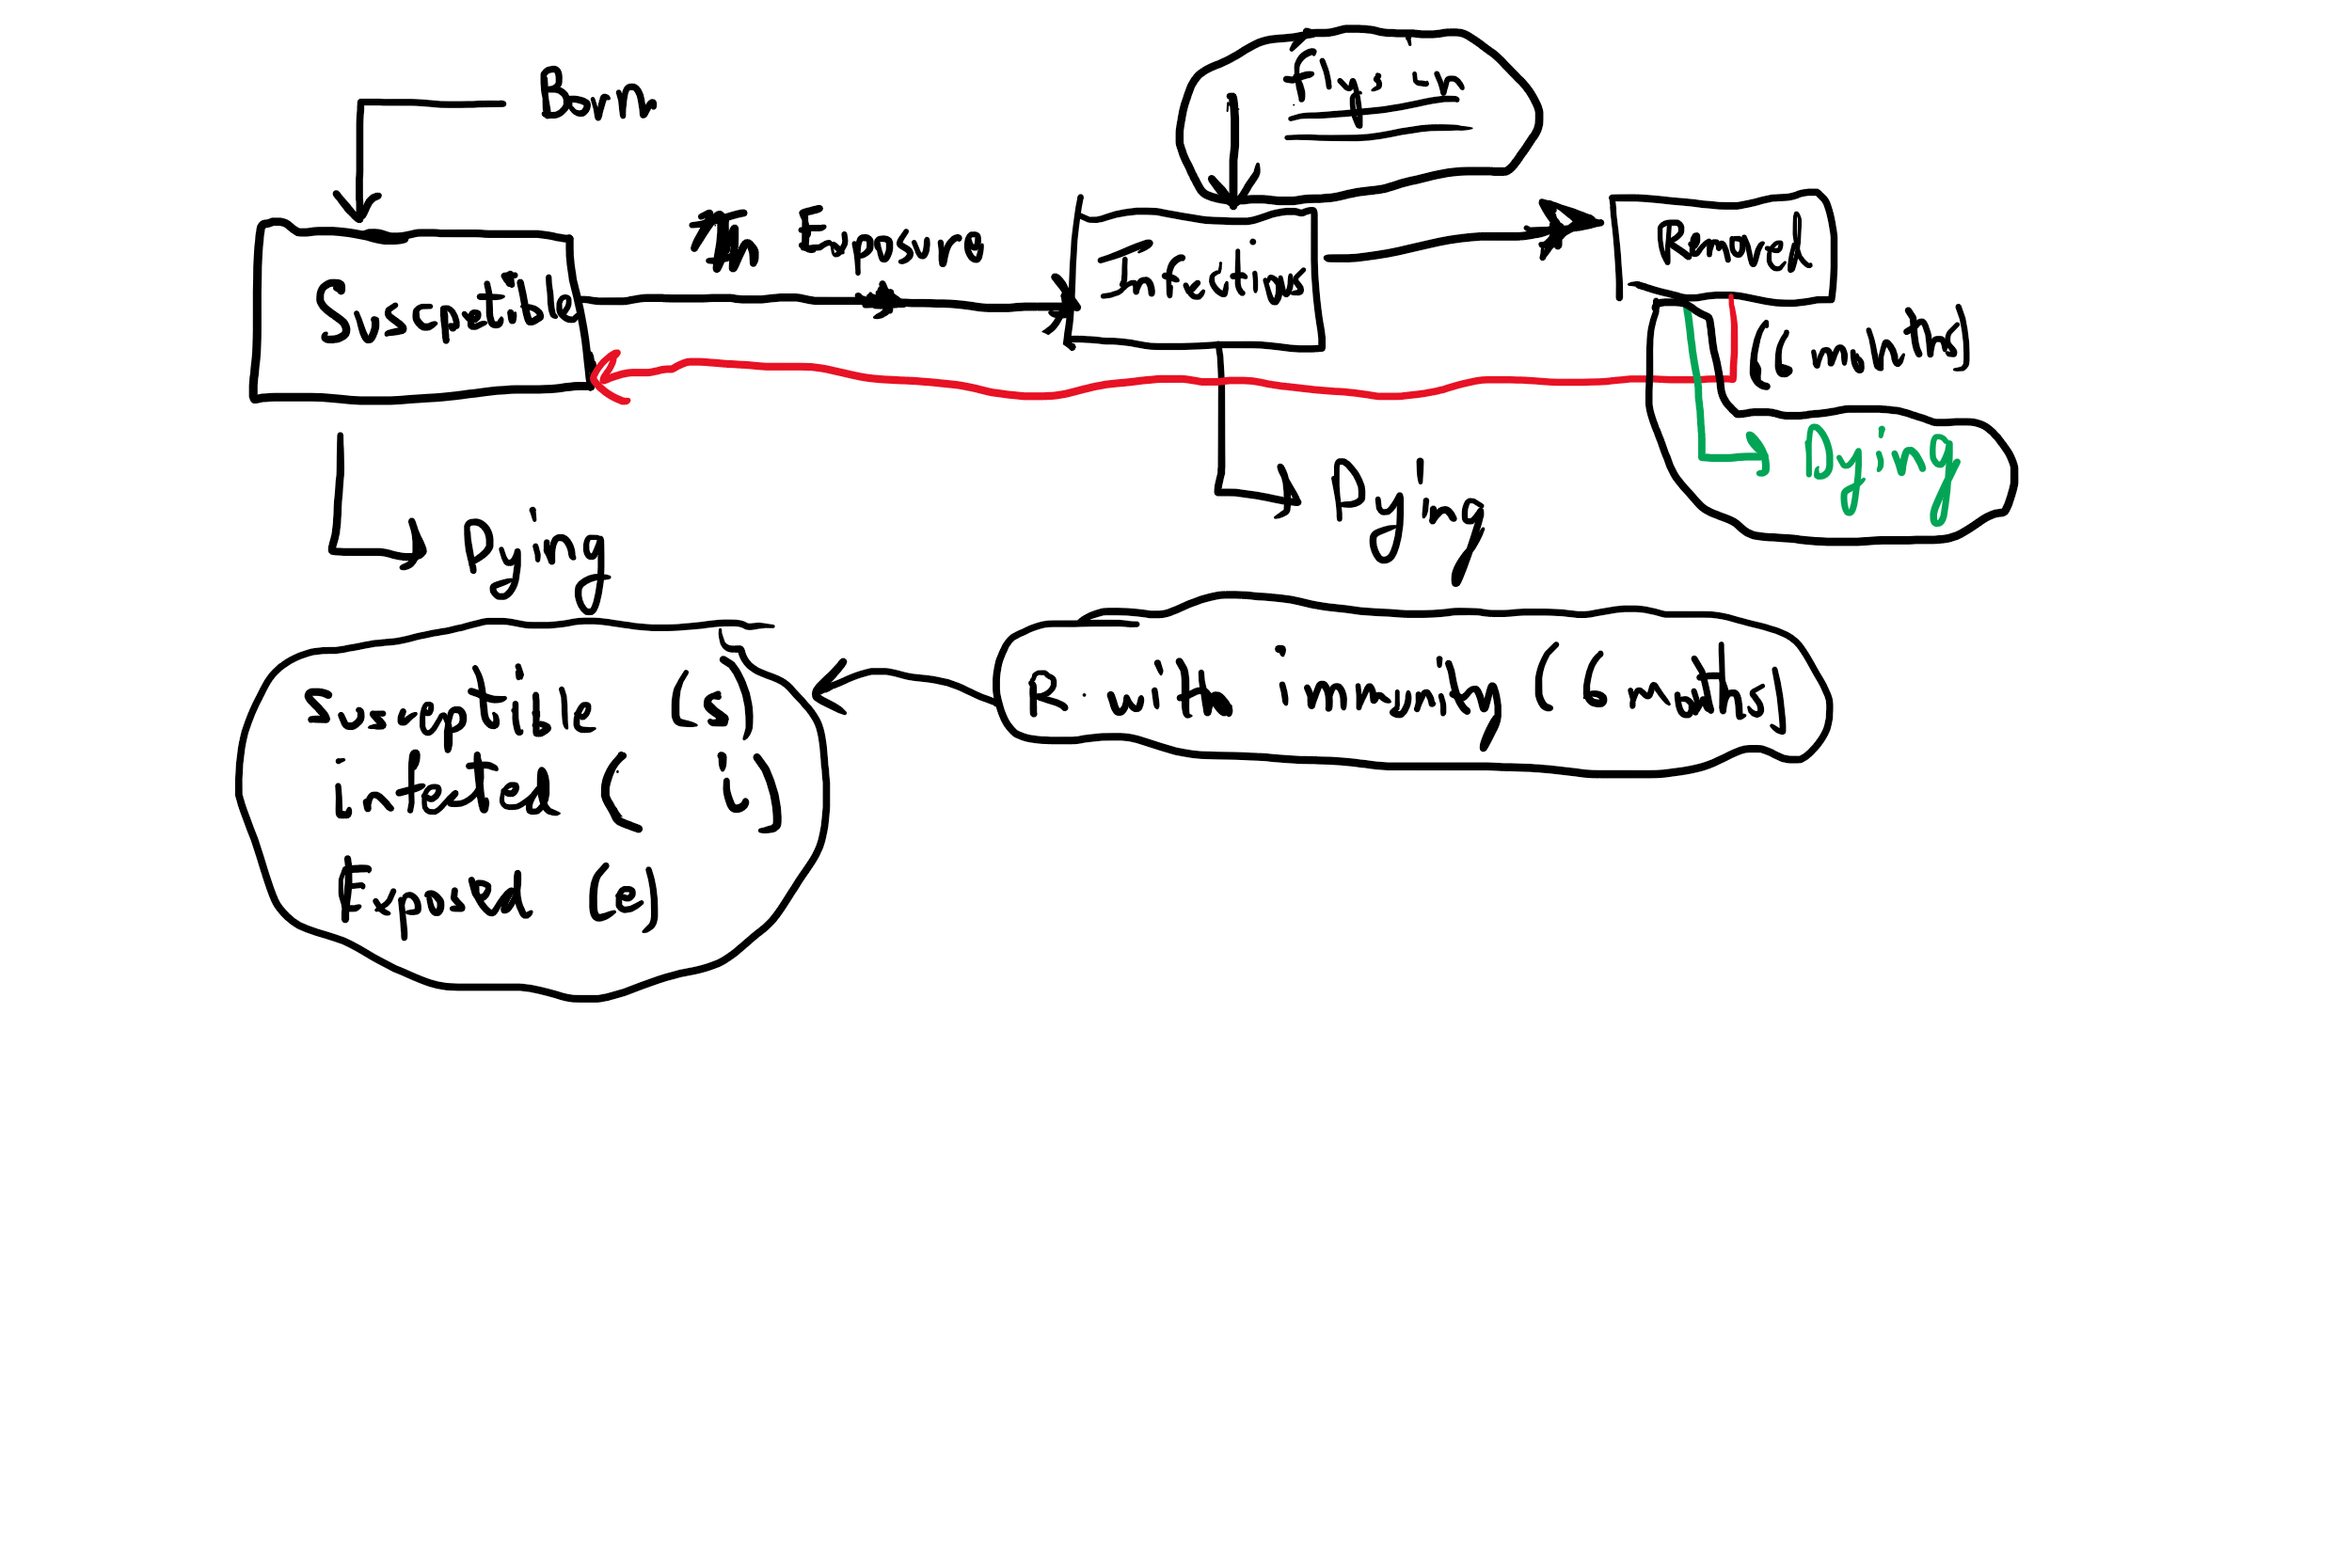 Born
flys in
Susceptible
Exposure
Infectious
Removed
(6 months)
Dying
Dying
Dying
Susceptible (s)
infected ( i)
Exposed (e)
R. with immunity (6 months)